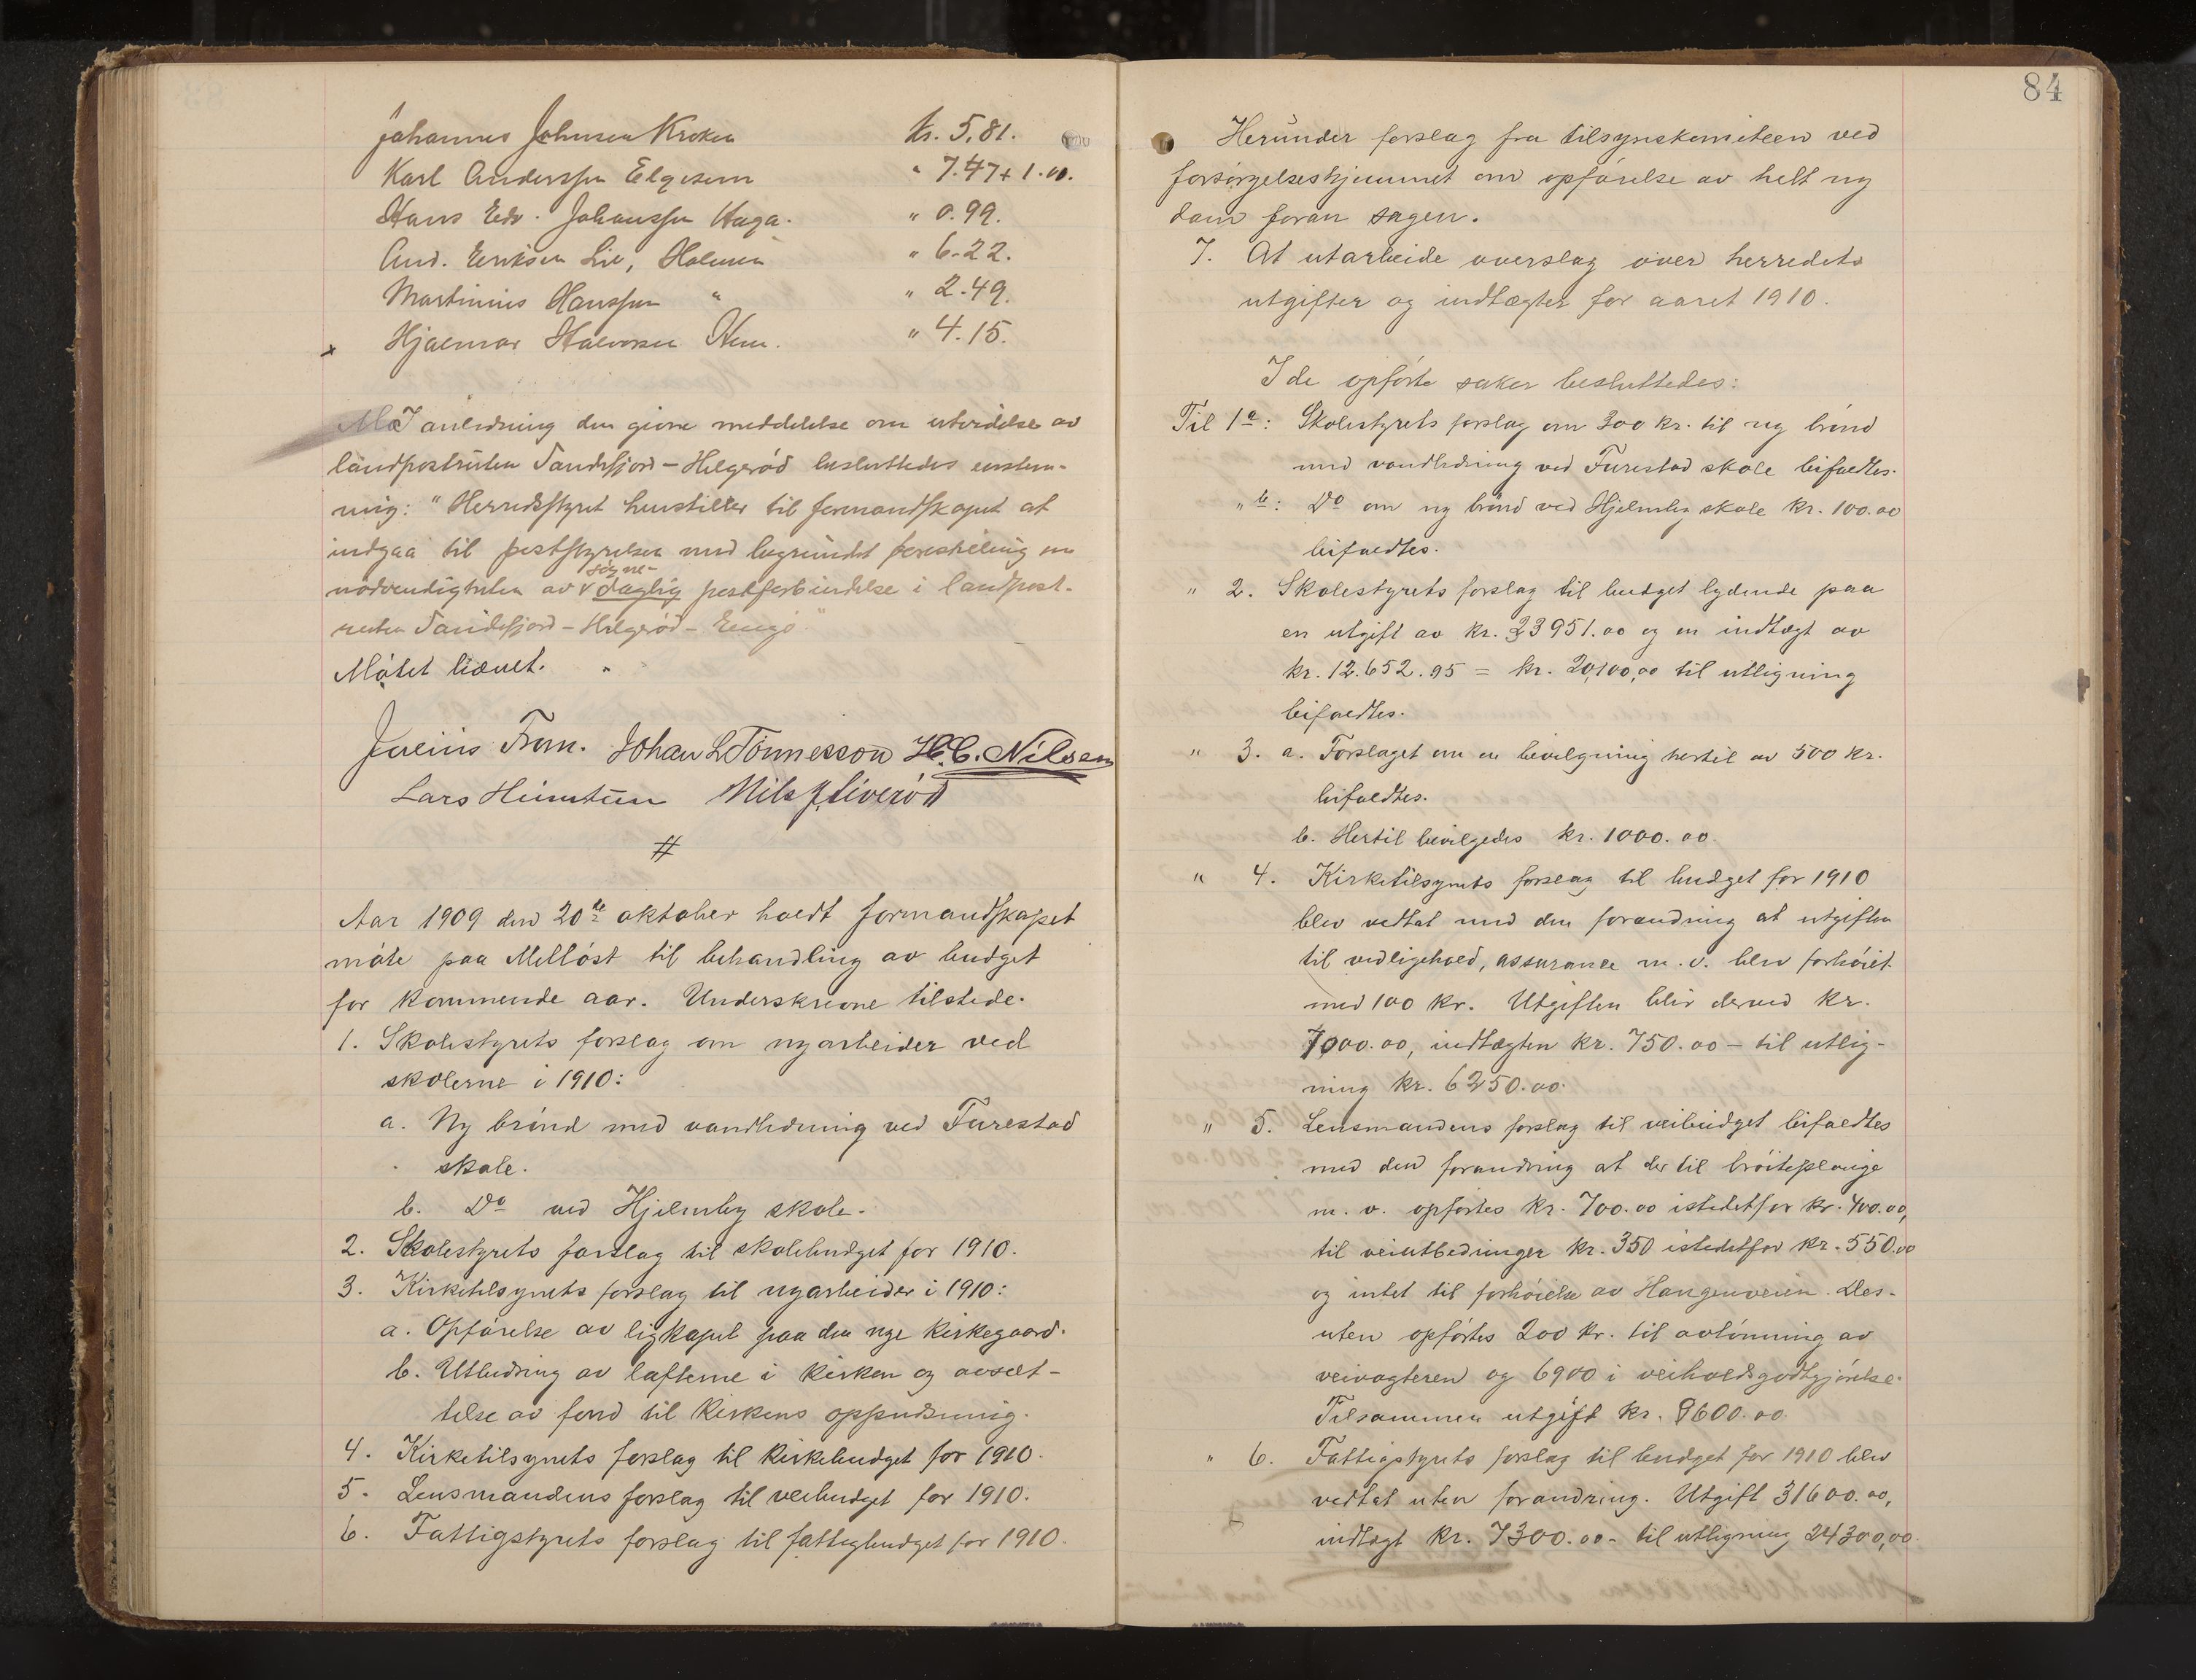 Johannes Johnsen Kroken kr. 5.81.
Karl Anderssen Elgesem " 7.47 + 1.00.
Hans Edv. Johanssen Haga. " 0.99.
And. Eriksen Lie, Holmen " 6.22.
Martinius Hanssen " " 2.49.
x Hjalmar Halvorsen Hem. " 4.15.
I anledning den givne meddelelse om utvidelse av
landpostruten Sandefjord - Helgerød besluttedes enstem-
mig: "Herredsstyret henstiller til formandskapet at
indgaa til poststyrelsen med begrundet forestilling om
nødvendigheten av søgne-
daglig postforbindelse i landpost-
ruten Sandefjord - Helgerød - Engø"
Møtet hævet.
Julius Fram. Johan L Tønnesson H.C. Nilsen
Lars Heimtun Nils J. Liverød
#
Aar 1909 den 20de oktober holdt formandskapet
møte paa Melløst til behandling av budget
for kommende aar. Underskrevne tilstede.
1. Skolestyrets forslag om nyarbeider ved
skolerne i 1910:
a. Ny brønd med vandledning ved Furestad
skole.
b. Do ved Hjelmby skole.
2. Skolestyrets forslag til skolebudget for 1910.
3. Kirketilsynets forslag til nyarbeider i 1910:
a. Opførelse av ligkapel paa den nye kirkegaard.
b. Utbedring av lofterne i kirken og avsæt-
telse av fond til kirkens oppudsning.
4. Kirketilsynets forslag til kirkebudget for 1910.
5. Lensmandens forslag til veibudget for 1910.
6. Fattigstyrets forslag til fattigbudget for 1910.
84
Herunder forslag fra tilsynskomiteen ved
forsørgelseshjemmet om opførelse av helt ny
dam foran sagen.
7. At utarbeide overslag over herredets
utgifter og indtægter for aaret 1910.
I de opførte saker besluttedes:
Til 1a: Skolestyrets forslag om 300 kr. til ny brønd
med vandledning ved Furestad skole bifaldtes.
" b: Do om ny brønd ved Hjelmby skole kr. 100.00
bifaldtes.
" 2. Skolestyrets forslag til budget lydende paa
en utgift av kr. 23951.00 og en indtægt av
kr. 12.652.95 = kr. 20,100,00 til utligning
bifaldtes.
" 3. a. Forslaget om en bevilgning hertil av 500 kr.
bifaldtes.
b. Hertil bevilgedes kr. 1000.00.
" 4. Kirketilsynets forslag til budget for 1910
blev vedtat med den forandring at utgiften
til vedligehold, assurance m.v. blev forhøiet
med 100 kr. Utgiften blir derved kr.
7000.00, indtægten kr. 750.00 - til utlig-
ning kr. 6250.00.
" 5. Lensmandens forslag til veibudget bifaldtes
med den forandring at der til brøiteplouge
m.v. opførtes kr. 700.00 istedetfor kr. 400.00,
til veiutbedringer kr. 350 istedetfor kr. 550.00
og intet til forhøielse av Haugenveien. Des-
uten opførtes 200 kr. til avlønning av
veivogteren og 6900 i veiholdsgodtgjørelse.
Tilsammen utgift kr. 8600.00.
" 6. Fattigstyrets forslag til budget for 1910 blev
vedtat uten forandring. Utgift 31600.00,
indtægt kr. 7300.00 - til utligning 24300,00.